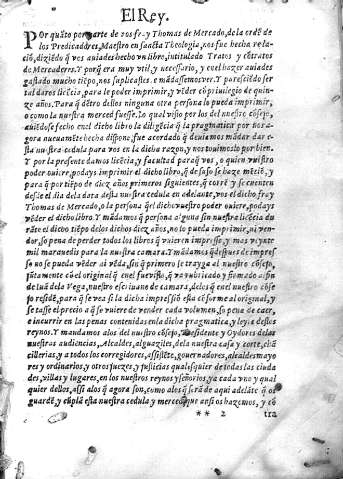 El Rey.
POr quãto por parte de vos fray Thomas de Mercado, de la ordẽ de
los Predicadores, Maestro en sancta Theologia, nos fue hecha rela-
ciõ, diziẽdo q̃ vos auiades hecho vn libro, intitulado Tratos y cõtratos
de Mercaderes. Y porq̃ era muy vtil, y necessario, y en el hazer auiades
gastado mucho tiẽpo, nos suplicastes. e mãdassemos ver. Y paresciẽdo ser
tal daros licẽcia, para le poder imprimir, y vẽder cõ priuilegio de quin-
ze años. Para q̃ dẽtro dellos ninguna otra persona lo pueda imprimir,
o como la nuestra merced fuesse. Lo qual visto por los del nuestro cõsejo,
auiẽdose fecho en el dicho libro la diligẽcia q̃ la pragmatica por nos a-
gora nueuamẽte hecha dispone, fue acordado q̃ deuiamos mãdar dar e-
sta nuestra cedula para vos en la dicha razon, y nos touimoslo por bien.
Y por la presente damos licẽcia, y facultad para q̃ vos, o quien vuestro
poder ouiere, podays imprimir el dicho libro, q̃ de suso se haze mẽciõ, y
para q̃ por tiẽpo de diez años primeros siguientes, q̃ corrẽ y se cuenten
desde el dia dela data desta nuestra cedula en adelante, vos el dicho fray
Thomas de Mercado, o la persona q̃ el dicho vuestro poder ouiere, podays
vẽder el dicho libro. Y mãdamos q̃ persona alguna sin nuestra licẽcia du
rãte el dicho tiẽpo delos dichos diez años, no lo pueda imprimir, ni ven-
dor, so pena de perder todos los libros q̃ vuieren impresso, y mas viynte
mil marauedis para la nuestra camara. Y mãdamos q̃ despues de impres
so no se pueda vẽder ni vẽda, sin q̃ primero se trayga al nuestro cõsejo,
jũtamente cõ el original q̃ en el fue visto, q̃ va rubricado y firmado al fin
de luã dela Vega, nuestro escriuano de camara, delos q̃ en el nuestro cõse
jo residẽ, para q̃ se vea si la dicha impressiõ esta cõforme al original, y
se tasse el precio a q̃ se vuiere de vender cada volumen, so pena de caer,
e incurrir en las penas contenidas en la dicha pragmatica, y leyes destos
reynos. Y mandamos alos del nuestro cõsejo, Presidente y Oydores delas
nuestras audiencias, Alcaldes, alguaziles, dela nuestra casa y corte, chã
cillerias, y a todos los corregidores, assistẽte, gouernadores, alcaldes mayo
res y ordinarios, y otros juezes, y justicias qualesquier de todas las ciuda
des, villas y lugares, en los nuestros reynos y señorios, ya cada vno y qual
quier dellos, assi alos q̃ agora son, como alos q̃ serã de aqui adelãte q̃ os
guardẽ, y cũplã esta nuestra cedula y merced que ansi os hazemos, y cõ
** 2 tra